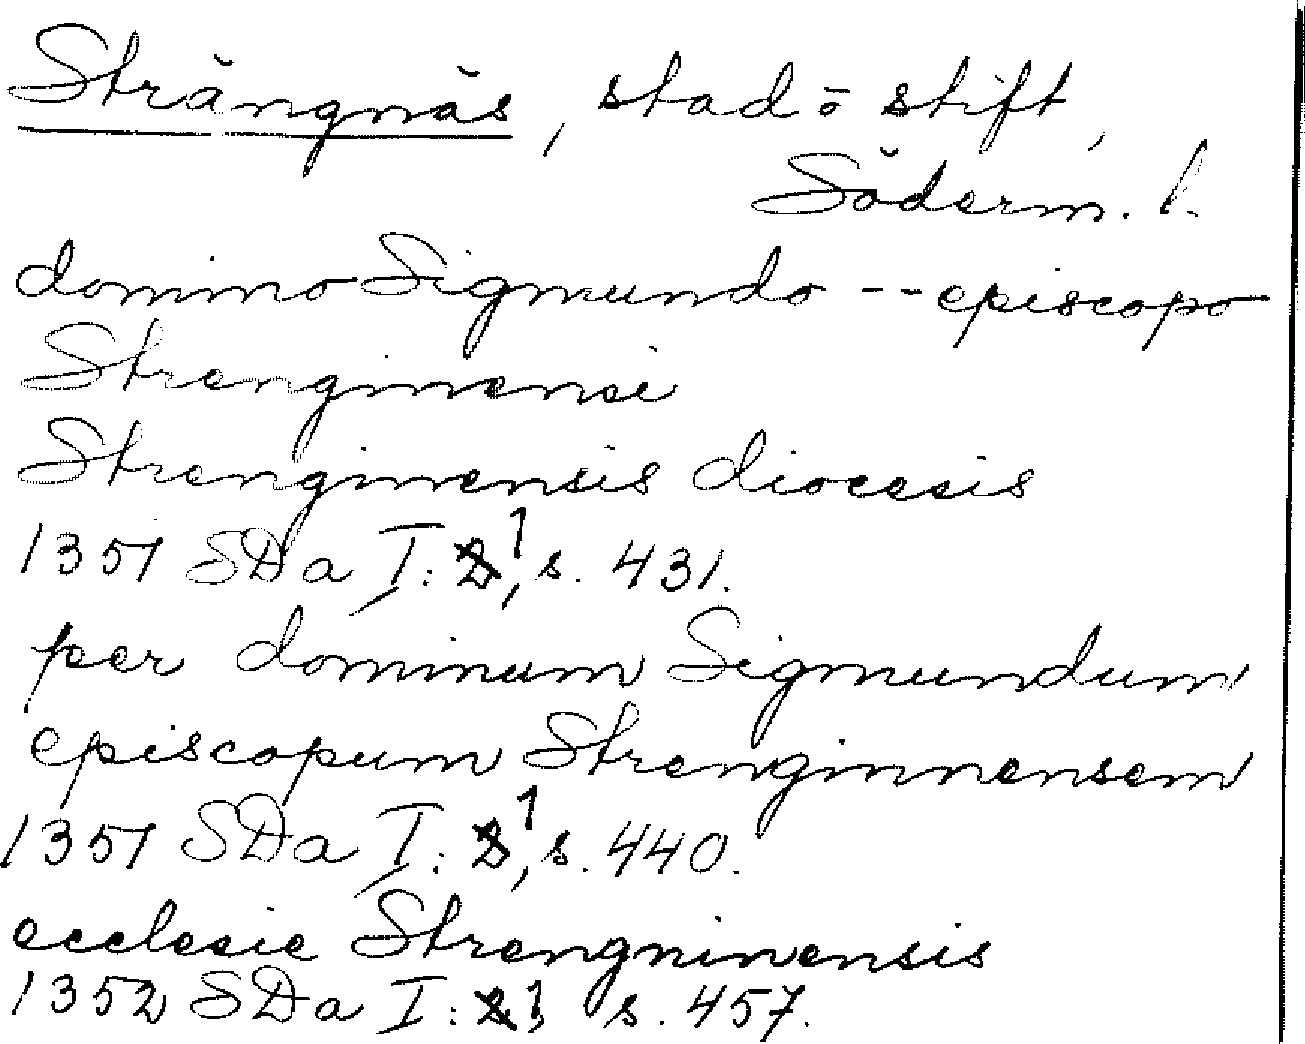 Strängnäs, stad o stift,
Söderm. l.
domino Sigmundo -- episcopo
Strenginensi
Strenginensis diocesis
1351 SDa I: 1, s. 431.
per dominum Sigmundum
episcopum Strenginnensem
1351 SDa I: 1, s. 440.
ecclesie Strengninensis
1352 SDa I: 1, s. 457.